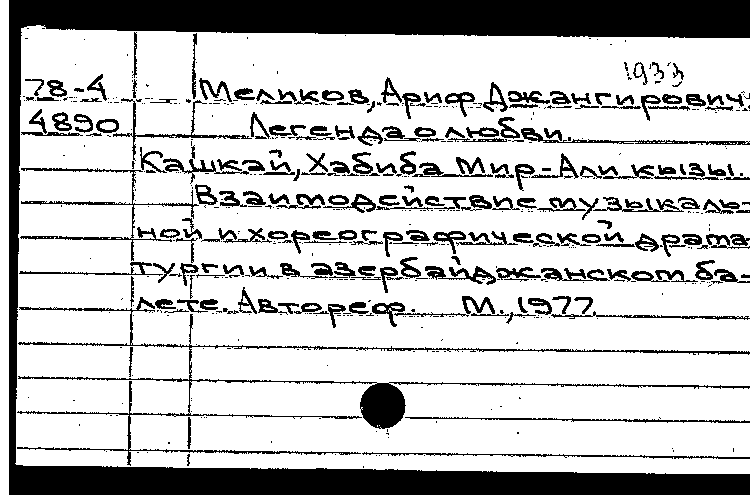 1933
78-4 Меликов, Ариф Джангирович.
4890 Легенда о любви.
Кашкай, Хабиба Мир-Али кызы.
Взаимодействие музыкаль-
ной и хореографической драма
тургии в азербайджанском ба-
лете. Автореф. М., 1977.